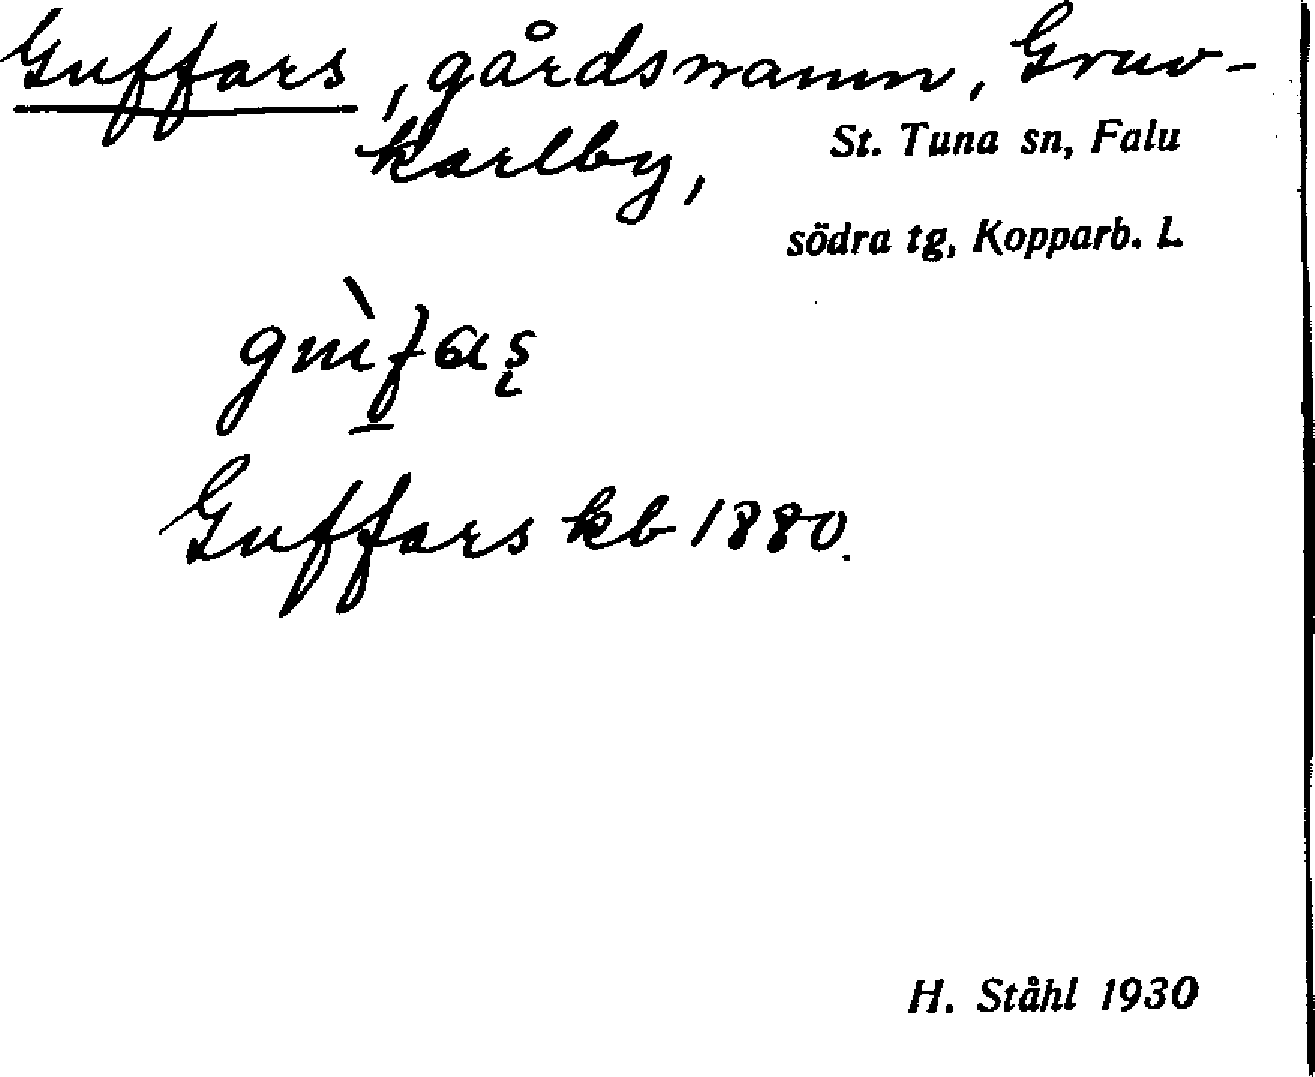 Guffars, gårdsnamn, Gruv-
karlby, St. Tuna sn, Falu
södra tg, Kopparb. L
Guffars kb 1880.
H. Ståhl 1930